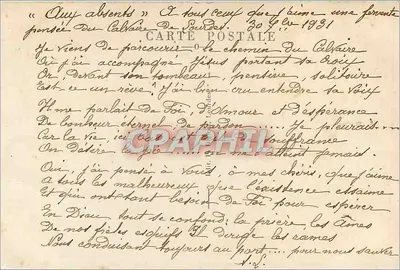 "Aux absents" A tous ceux que j'aime une fervente
pensée du Calvaire de Lourdes. 30 1931
CARTE POSTALE
Je viens de parcourir le chemin du Calvaire
Où j'ai accompagné Jésus portant sa Croix
Or, devant son tombeau, pensive, solitaire
Est-ce un rêve? J'ai bien cru entendre sa Voix
Il me parlait de Foi, d'Amour et d'espérance
De bonheur éternel de pardon ..... Je pleurais...
Car la vie, ici souffrance
On désire jamais.
Oui, j'ai pensé à Vous, à mes chéris, que j'aime
A tous les malheureux que l'existence
Et qui ont tant besoin de Foi pour espérer
En Dieu tout se confond: la prière, les Âmes
De nos frêles esquifs Il dirige les rames
Nous conduisant toujours au port.... pour nous sauver
CPAPHIL